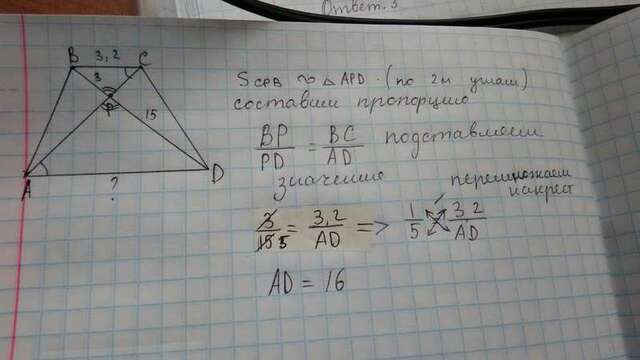 Ответ. 3
B 3,2 C
3
15
P
A ? D
S CPB ∾ △ APD. (по 2м углам)
составим пропорцию
BP/PD = BC/AD подставляем
значение
перемножаем
накрест
3/15 5 = 3,2/AD => 1/5 3,2/AD
AD = 16